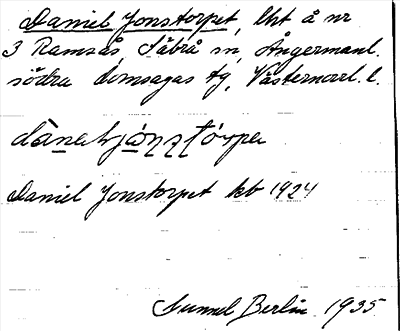 Daniel Jonstorpet, lht å nr
3 Ramsås Säbrå sn, Ångermanl.
södra domsagas tg, Västernorrl. l.
Daniel Jonstorpet kb 1924
Sunnel Berlin 1935